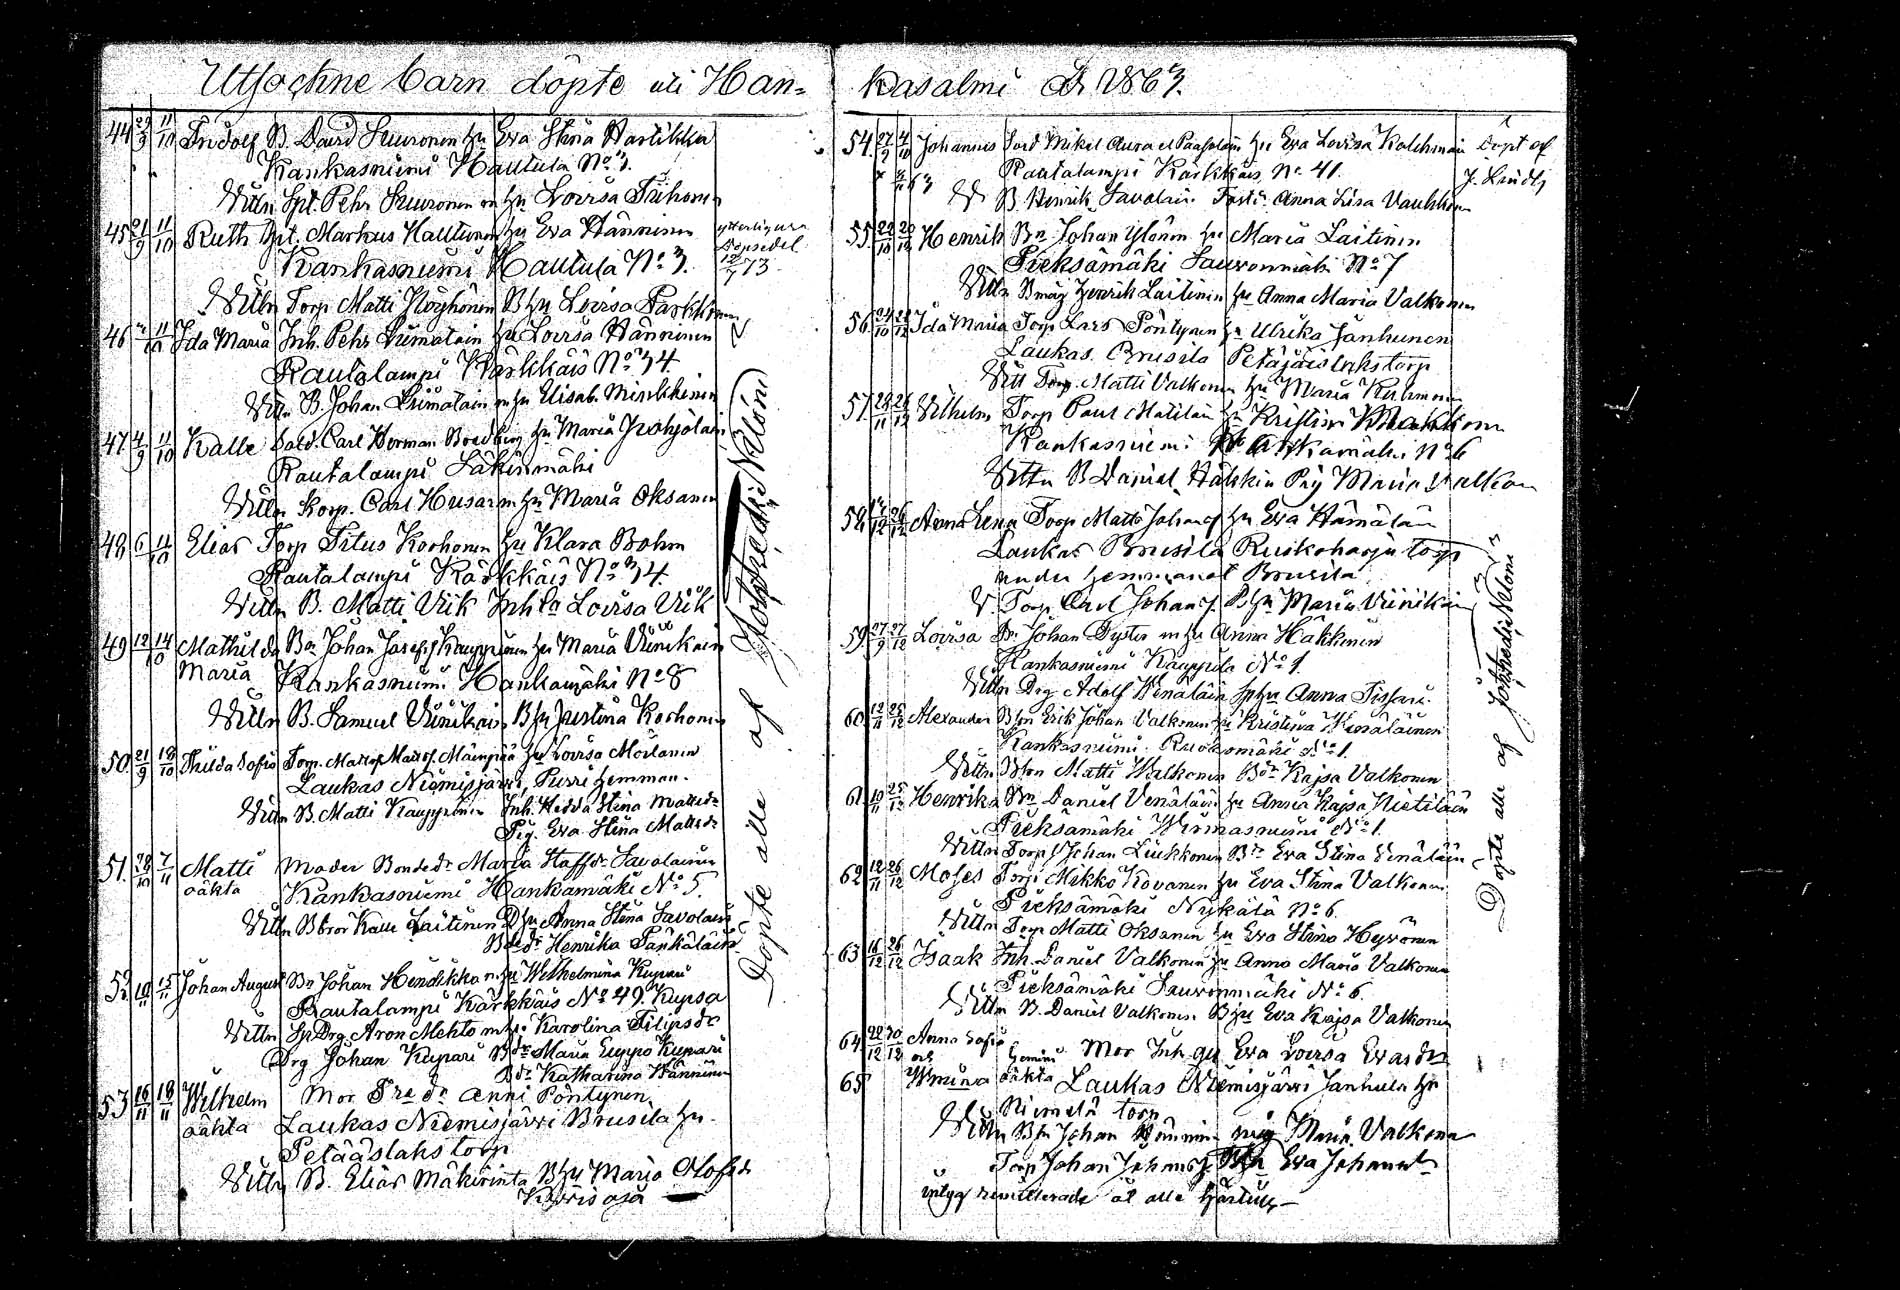 Utsochne barn döpte uti Han=
44 29/9 11/10 Fridolf B. David Suuronen hu Eva Stina Hartikka
Kankasniemi Hautula No 3.
Vittn Spt. Pehr Suuronen m hu Lovisa Tiihonen
45 21/9 11/10 Ruth Spt. Markus Hautunen hu Eva Hänninen
Kankasniemi Hautula No 3.
Vittn Torp Matti Pöyhönen B hu Lovisa Parkkonen
46 11/10 Ida Maria Inh. Pehr Liimatain hu Lovisa Hänninen
Rautalampi Kärkkäis No 34
Vittn B. Johan Liimatain m hu Elisab. Minkkinen
47 4/9 11/10 Kalle Sold. Carl Herman Bredberg hu Maria Pohjolain
Rautalampi Säkinmäki
Vittn Korp. Carl Husar m hu Maria Oksanen
48 6 11/10 Elias Torp Titus Korhonen hu Klara Bohm
Rautalampi Kärkkäis No 34.
Vittn B. Matti Viik Inh Lovisa Viik
49 12 14/10 Mathilda Bn Johan Josefs Kauppinen hu Maria Viinikain
Maria Kankasniemi Hankamäki No 8
Vittn B. Samuel Viinikain B hu Justina Korhonen
50. 21/9 18/10 Thilda Sofia Torp. Matts Matts Mäenpää hu Lovisa Moilanen
Laukas Niemisjärvi, Purri hemman.
Vittn B. Matti Kauppinen Inh. Hedda Stina Mattsdr
Pig. Eva Stina Mattsdr
51. 28/10 7/11 Matti Moder Bondedr Maria Staffdr Savolainen
oäkta Kankasniemi Hankamäki No 5.
Vittn Bbror Kalle Laitinen B hu Anna Stina Savolain
Bdedr Henrika Pänkäläin
52. 10/11 15/11 Johan August Bn Johan Hendikka m hu Wilhelmina Kupari
Rautalampi Kärkkäis No 49. Kupsa
Vittn Sp Drg. Aron Mehto m hu. Karolina Filipsdr
Drg Johan Kupari Bdr Maria Euppo Kupari
Bdr Katharina Hänninen
53 16/11 18/11 Wilhelm Mor Anni Pöntynen
oäkta Laukas Niemisjärvi Brusila hu.
Petääslaks torp
Vittn B. Elias Mäkirinta B hu Maria Olofsdr
ytterligare
Döpsedel
12/7 73
Döpte alle af
kasalmi År 1863.
54. 27/9 4/10 Johannes Sold Mikel hu Eva Lovisa Kolehmain Döpt af
Rautalampi Kärkkäis No 41. J. Lindh
V B. Henrik Savolain Anna Liisa Vauhkonen
55. 22/10 20/12 Henrik Bn Johan Ylönen hu Maria Laitinen
Pieksämäki Sauvonmäki No 7
Vittn Bmåg Henrik Laitinen hu Anna Maria Valkonen
56. 24/10 Ida Maria Torp Lars Pöntynen hu Ulrika Janhunen
Laukas. Brusila Petäjäislakstorp
Vitt Torp. Matti Valkonen hu Maria Kuhmonen
57. 28/11 26/12 Vilhelm Torp Paul Matilain hu Kristina
Kankasniemi Hankamäki No 6
Vittn B Daniel Häkkin Pig Maria Valkon
58. 26/12 Anna Lena Torp Matts Johans hu Eva Hämäläin
Laukas Brusila Ruokoharju torp
under hemmanet Brusila
V Torp Carl Johans B hu Maria Viinikain
59. 27/9 27/12 Lovisa Bn Johan Dyster m hu Anna Häkkinen
Kankasniemi Kauppila No 1.
Vittn Drg Adolf Venäläin hu Anna Tissari.
60. 12/11 25/12 Alexander Bson Erik Johan Valkonen hu Kristina Venäläinen
Kankasniemi. No 1.
Vittn Bson Matti Valkonen Bdr Kajsa Valkonen
61. 10/11 25/12 Henrika Bn Daniel Venäläin hu Anna Kajsa Nietiläin
Pieksämäki Virmasniemi No 1.
Vittn Torp Johan Liukkonen Bdr Eva Stina Venäläin
62. 12/11 26/12 Moses Torp Mikko Kovanen hu Eva Stina Valkonen
Pieksämäki Nykälä No 6.
Vittn Torp Matti Oksanen hu Eva Stina Hyvönen
63 16/12 26/12 Isaak Inh. Daniel Valkonen hu Anna Maria Valkonen
Pieksämäki Sauvonmäki No 6.
Vittn B. Daniel Valkonen B hu Eva Kajsa Valkonen
64 22/12 30/12 Anna Sofia
och Gemini Mor Inh. qu Eva Lovisa Evasdr
65 Wmiina oäkta Laukas Niemisjärvi Janhula hu
Niemelä torp
Vittn Bn Johan Hänninen pig Maria Valkonen
Torp Johan Johans Eva Johansdr
intyg remitterade åt alle
Döpte alle af